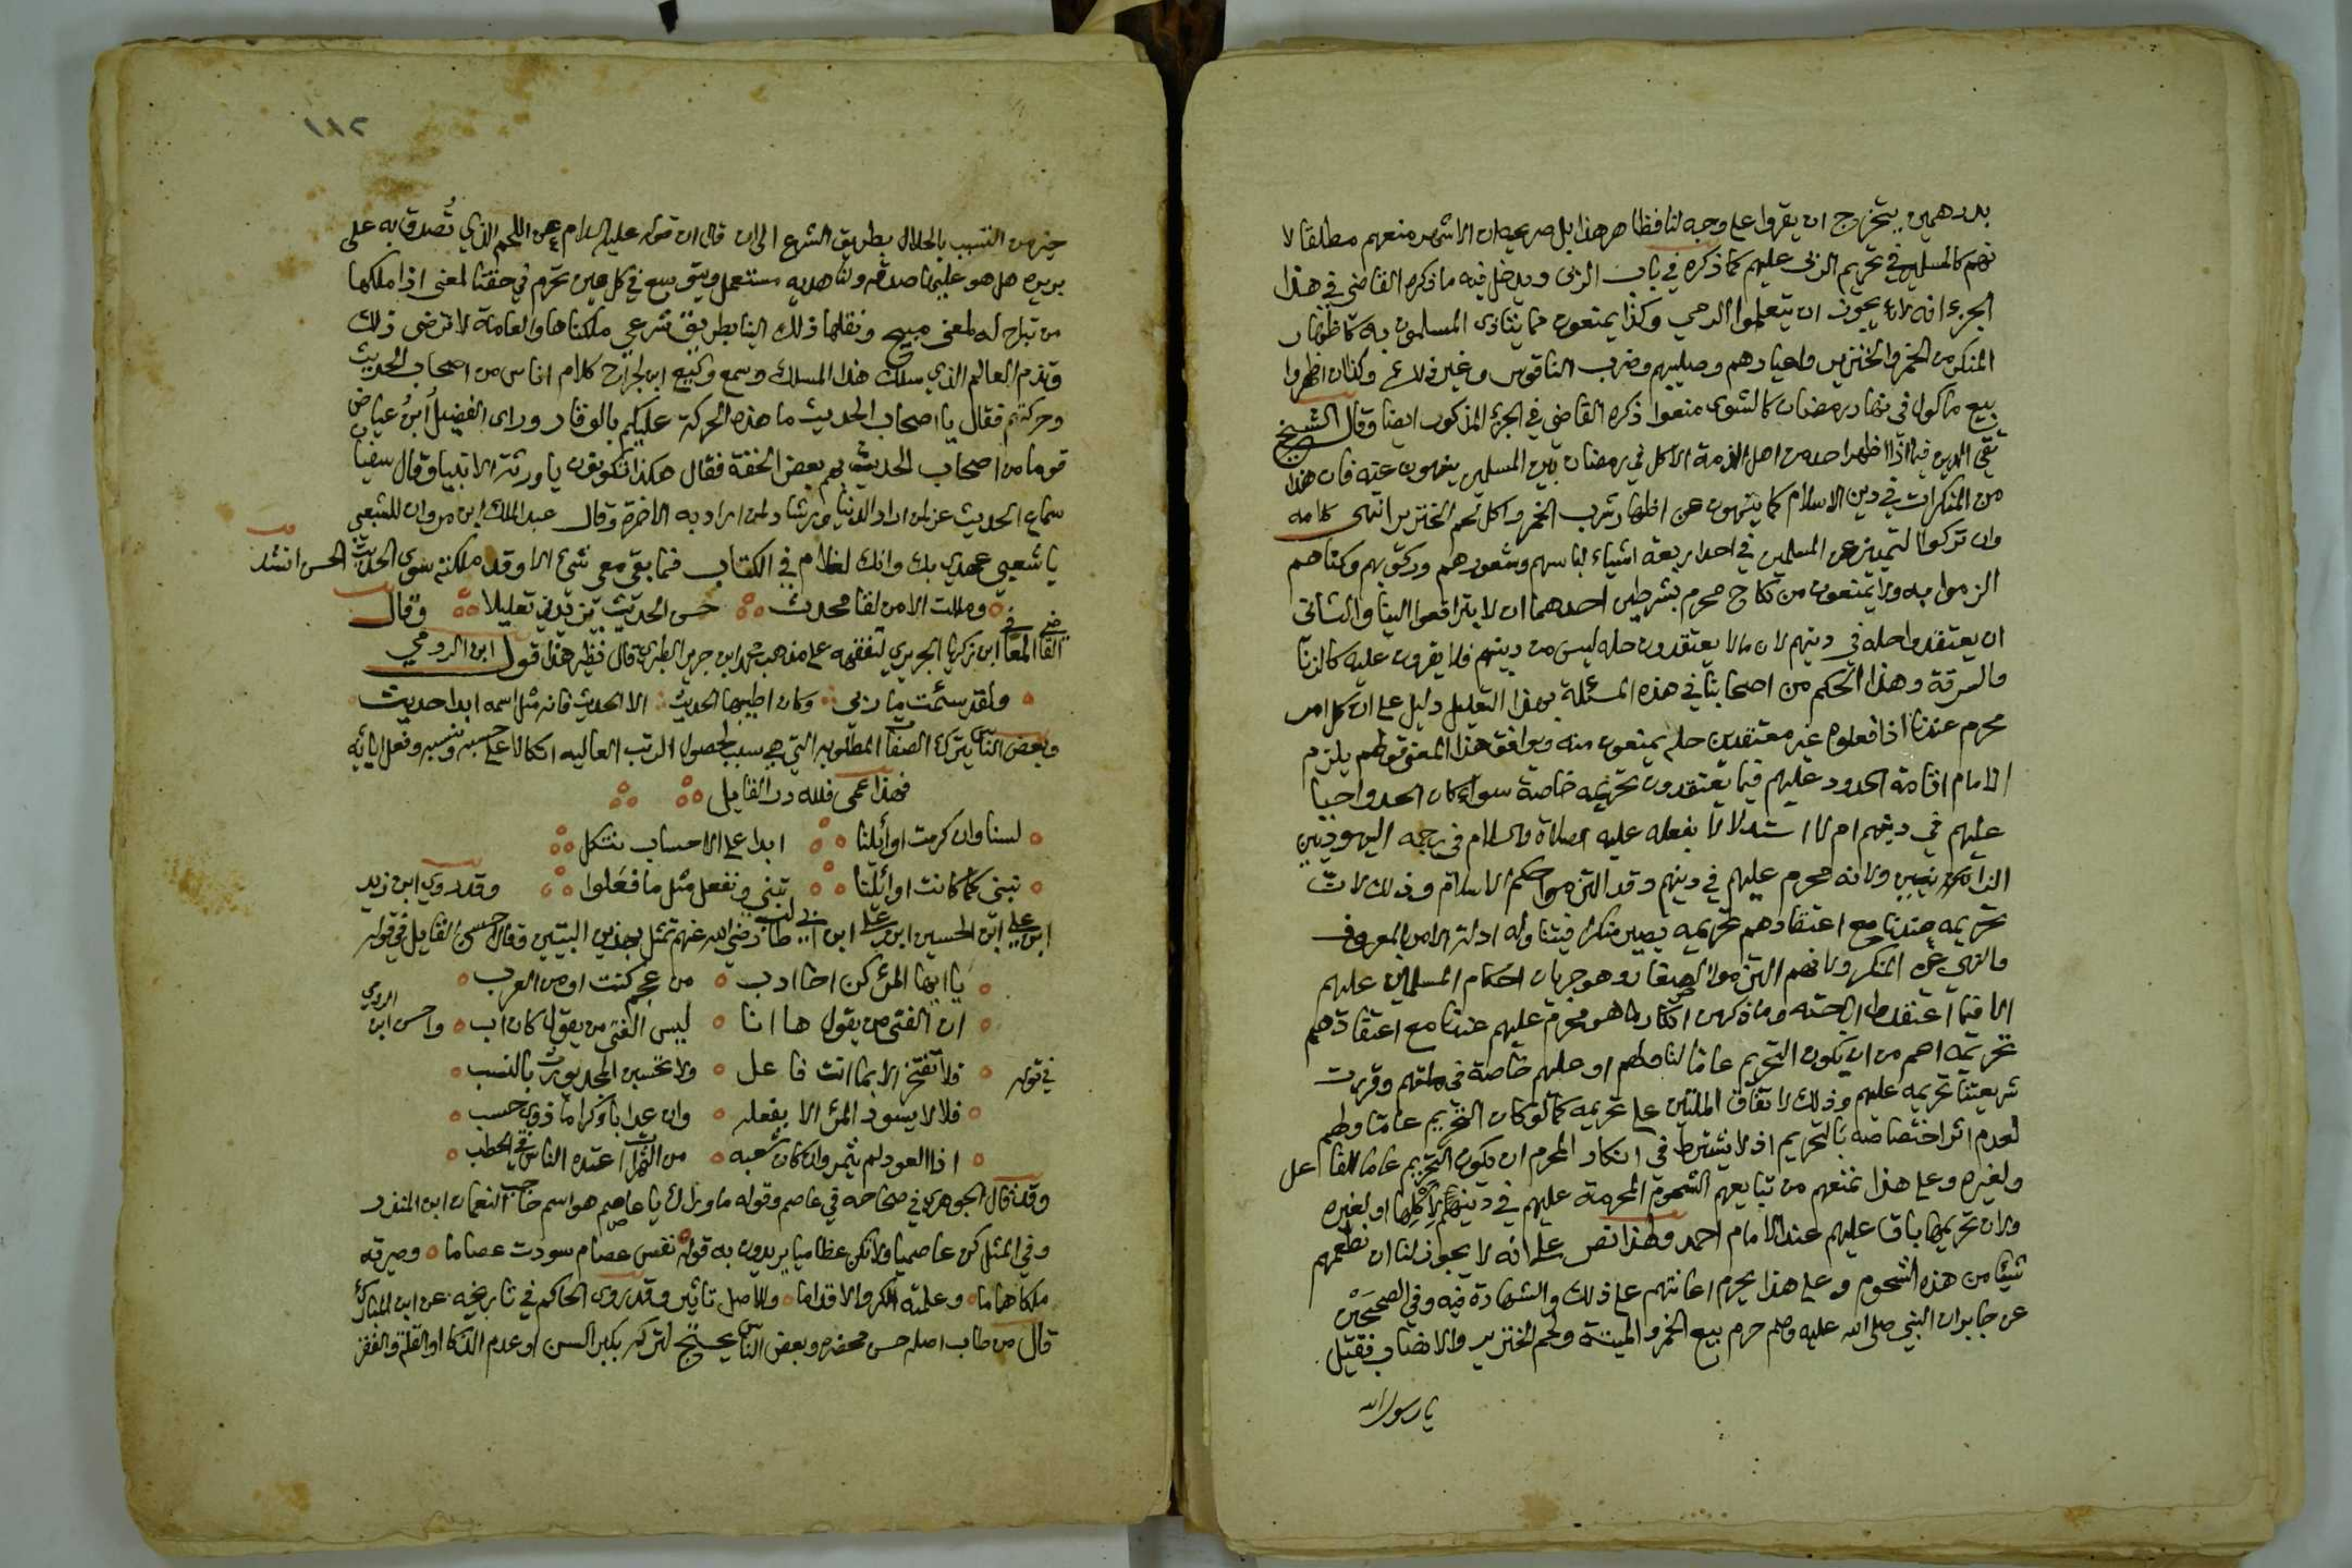 بدرهمين يتخرج ان يقروا على وجه لنا فظاهر هذا بل صريحه ان الاشهر منعهم مطلقا لا
نهم كالمسلمين في تحريم الربى عليهم كما ذكره في باب الربى ويدخل فيه ما ذكره القاضي في هذا
الجزء انه لا يجوز ان يتعلموا الرمي وكذا يمنعون مما يتاذى المسلمون به كاظهار
المنكر من الخمر والخنزير واعيادهم وصليبهم وضرب الناقوس وغير ذلك وكذا ان اظهروا
بيع ماكول في نهار رمضان كالشوى منعوا ذكره القاضي في الجزء المذكور ايضا وقال الشيخ
تقي الدين فيما اذا اظهر احد من اهل الذمة الاكل في رمضان بين المسلمين ينهون عنه فان هذا
من المنكرات في دين الاسلام كما ينهون عن اظهار شرب الخمر واكل لحم الخنزير انتهى كلامه
وان تركوا التميز عن المسلمين في احد اربعة اشياء لباسهم وشعورهم وركوبهم وكناهم
الزموا به ولا يمنعون من نكاح محرم بشرطين احدهما ان لا يترافعوا الينا والثاني
ان يعتقدوا حله في دينهم لان ما لا يعتقدون حله ليس من دينهم فلا يقرون عليه كالزنا
والسرقة وهذا الحكم من اصحابنا في هذه المسئلة بهذا التعليل دليل على ان كل امر
محرم عندنا اذا فعلوه غير معتقدين حله يمنعون منه ويوافق هذا المعنى قولهم يلزم
الامام اقامة الحدود عليهم فيما يعتقدون تحريمه خاصة سواء كان الحد واجبا
عليهم في دينهم ام لا استدلالا بفعله عليه الصلاة والسلام في رجمه اليهوديين
الزانيين ولانه محرم عليهم في دينهم وقد التزموا حكم الاسلام وذلك لان
تحريمه عندنا مع اعتقادهم تحريمه يصير منكرا فيتناوله ادلة الامر بالمعروف
والنهي عن المنكر ولانهم التزموا الصغار وهو جريان احكام المسلمين عليهم
الا فيما اعتقدوا اباحته وما ذكر من انكار ما هو محرم عليهم عندنا مع اعتقادهم
تحريمه اعم من ان يكون التحريم عاما لنا ولهم او عليهم خاصة في ملتهم وقررت
شريعتنا تحريمه عليهم وذلك لاتفاق الملتين على تحريمه كما لو كان التحريم عاما ولهم
لعدم اثر اختصاصه بالتحريم اذ لا يشترط في انكار المحرم ان يكون التحريم عاما للفاعل
ولغيره وعلى هذا نمنعهم من تبايعهم الشحوم المحرمة عليهم في دينهم لاكلها او لغيره
ولان تحريمها باق عليهم عند الامام احمد ولهذا نص على انه لا يجوز لنا ان نطعمهم
شيئا من هذه الشحوم وعلى هذا يحرم اعانتهم على ذلك والشهادة فيه وفي الصحيحين
عن جابر ان النبي صلى الله عليه وسلم حرم بيع الخمر والميتة ولحم الخنزير والاصنام فقيل
يا رسول الله
١٨٢
خير من التسبب بالحلال بطريق الشرع الى ان قال ان قوله عليه السلام عن اللحم الذي تُصدق به على
بريره هل هو عليها صدقه ولنا هديه مستعمل ويتوسع في كل عين تحرم في حقنا لمعنى اذا ملكها
من تباح له لمعنى مبيح ونقلها ذلك الينا بطريق شرعي ملكناها والعامة لا ترضى ذلك
وتذم العالم الذي سلك هذا المسلك وسمع وكيع ابن الجراح كلام اناس من اصحاب الحديث
وحركتهم فقال يا اصحاب الحديث ما هذه الحركة عليكم بالوقار وراى الفضيل ابن عياض
قوما من اصحاب الحديث بهم بعض الخفة فقال هكذا تكونون يا ورثة الانبيا وقال سفيان
سماع الحديث عز لمن اراد الدنيا ورشاد لمن اراد به الاخرة وقال عبد الملك ابن مروان للشعبي
يا شعبي عهدي بك وانك لغلام في الكتاب فما بقي معي شيء الا وقد مللته سوى الحديث الحسن انشد
ومللت الا من لقا محدث حسن الحديث يزيدني تعليلا وقال
القاضي المعافى ابن زكريا الجريري لتفقهه على مذهب محمد ابن جرير الطبري قال نظير هذا قول ابن الرومي
ولقد سئمت مآربي وكان اطيبها الحديث الا الحديث فانه مثل اسمه ابدا حديث
وبعض الناس يترك الصفات المطلوبه التي هي سبب لحصول الرتب العاليه اتكالا على حسبه ونسبه وفعل ابائه
فهذا عمى فلله در القايل
لسنا وان كرمت اوائلنا ابدا على الاحساب نتكل
نبني كما كانت اوائلنا تبني ونفعل مثل ما فعلوا وقد روي ابن زيد
ابن علي ابن الحسين ابن علي ابن ابي طالب رضي الله عنهم تمثل بهذين البيتين وقال حسن القايل في قوله
يا ايها المرء كن اخا ادب من عجم كنت او من العرب
ان الفتى من يقول ها انا ليس الفتى من يقول كان ابي واحسن ابن الرومي
في قوله فلا تفتخر الا بما انت فاعل ولا تحسبن المجد يورث بالنسب
فلا لا يسود المرء الا بفعله وان عد اباء كراما ذوي حسب
اذا العود لم يثمر وان كان شعبه من المثمرات اعتده الناس في الحطب
وقد قال الجوهري في صحاحه في عاصم وقوله ما وراك يا عاصم هو اسم حاجب النعمان ابن المنذر
وفي المثل كن عاصميا ولا تكن عظاميا يريدون به قوله نفس عصام سودت عصاما وصيرته
ملكا هماما وعلمته الكر والاقداما وللاصل تاثير وقد روى الحاكم في تاريخه عن ابن المبارك
قال من طاب اصله حسن محضره وبعض الناس يحتج لتركه بكبر السن او عدم الذكا او القلة والفقر